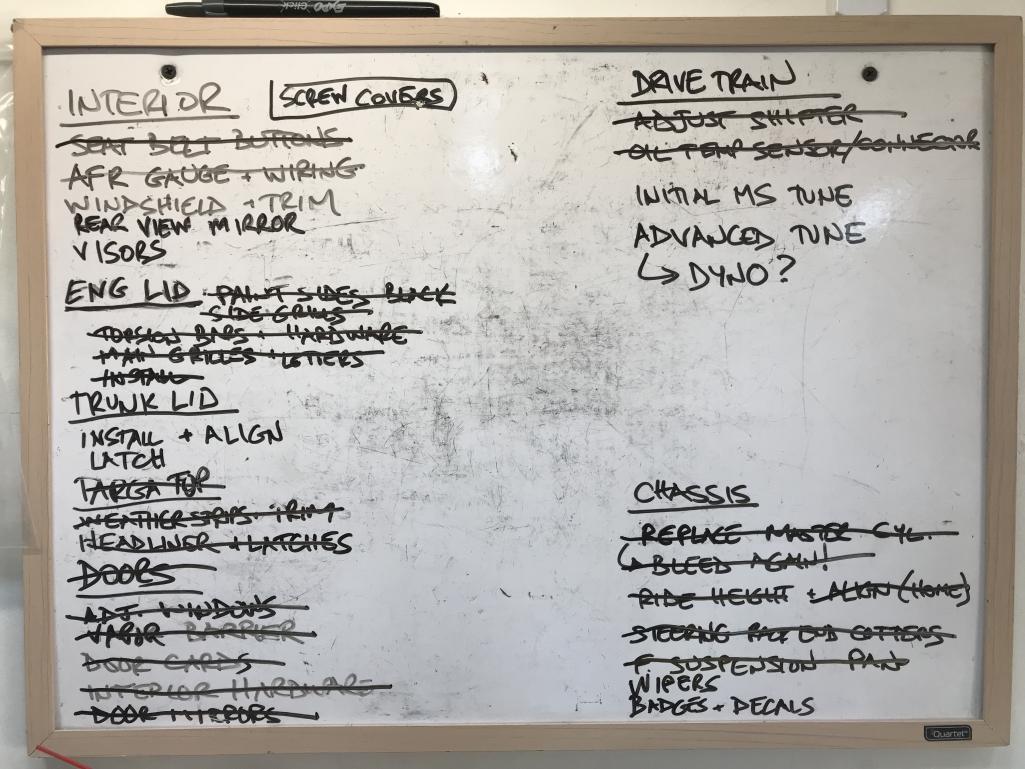 EXPO Click
INTERIOR
SCREW COVERS
SEAT BELT BUTTONS
AFR GAUGE + WIRING
WINDSHIELD + TRIM
REAR VIEW MIRROR
VISORS
ENG LID PAINT SIDES BLACK
SIDE GRILLS
TORSION BARS + HARDWARE
MAIN GRILLES + LETTERS
INSTALL
TRUNK LID
INSTALL + ALIGN
LATCH
TARGA TOP
WEATHERSTRIPS + TRIM
HEADLINER + LATCHES
DOORS
ADJ WINDOWS
VAPOR BARRIER
DOOR CARDS
INTERIOR HARDWARE
DOOR MIRRORS
DRIVE TRAIN
ADJUST SHIFTER
OIL TEMP SENSOR/CONNECTOR
INITIAL MS TUNE
ADVANCED TUNE
↳ DYNO?
CHASSIS
REPLACE MASTER CYL.
↳ BLEED AGAIN!
RIDE HEIGHT + ALIGN (HOME)
STEERING RACK END COTTERS
F SUSPENSION PAN
WIPERS
BADGES + DECALS
Quartet